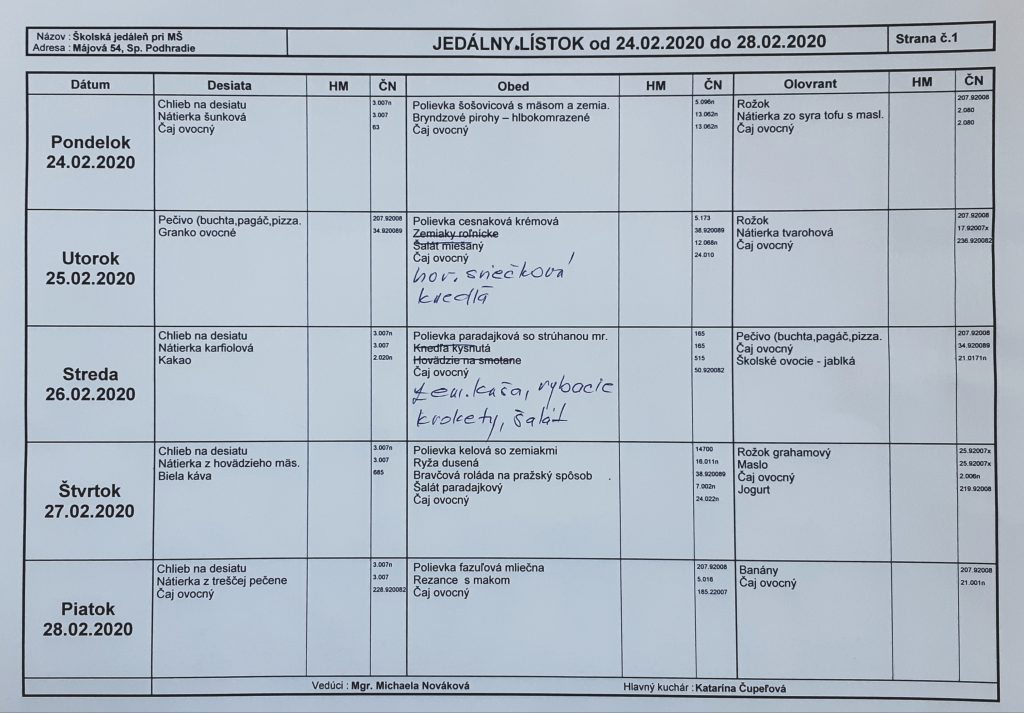 Názov : Školská jedáleň pri MŠ
Adresa : Májová 54, Sp. Podhradie
JEDÁLNY LÍSTOK od 24.02.2020 do 28.02.2020
Strana č.1
Dátum Desiata HM ČN Obed HM ČN Olovrant HM ČN
Pondelok
24.02.2020
Chlieb na desiatu
Nátierka šunková
Čaj ovocný
3.007n
3.007
63
Polievka šošovicová s mäsom a zemia.
Bryndzové pirohy – hlbokomrazené
Čaj ovocný
5.096n
13.062n
13.062n
Rožok
Nátierka zo syra tofu s masl.
Čaj ovocný
207.92008
2.080
2.080
Utorok
25.02.2020
Pečivo (buchta,pagáč,pizza.
Granko ovocné
207.92008
34.920089
Polievka cesnaková krémová
Zemiaky roľnicke
Šalát miešaný
Čaj ovocný
hov. sviečková
knedľa
5.173
38.920089
12.068n
24.010
Rožok
Nátierka tvarohová
Čaj ovocný
207.92008
17.92007x
236.920082
Streda
26.02.2020
Chlieb na desiatu
Nátierka karfiolová
Kakao
3.007n
3.007
2.020n
Polievka paradajková so strúhanou mr.
Knedľa kysnutá
Hovädzie na smotane
Čaj ovocný
zem. kaša, rybacie
krokety, šalát
165
165
515
50.920082
Pečivo (buchta,pagáč,pizza.
Čaj ovocný
Školské ovocie - jablká
207.92008
34.920089
21.0171n
Štvrtok
27.02.2020
Chlieb na desiatu
Nátierka z hovädzieho mäs.
Biela káva
3.007n
3.007
685
Polievka kelová so zemiakmi
Ryža dusená
Bravčová roláda na pražský spôsob .
Šalát paradajkový
Čaj ovocný
14700
16.011n
38.920089
7.002n
24.022n
Rožok grahamový
Maslo
Čaj ovocný
Jogurt
25.92007x
25.92007x
2.006n
219.92008
Piatok
28.02.2020
Chlieb na desiatu
Nátierka z treščej pečene
Čaj ovocný
3.007n
3.007
228.920082
Polievka fazuľová mliečna
Rezance s makom
Čaj ovocný
207.92008
5.018
185.22007
Banány
Čaj ovocný
207.92008
21.001n
Vedúci : Mgr. Michaela Nováková
Hlavný kuchár : Katarína Čupeľová